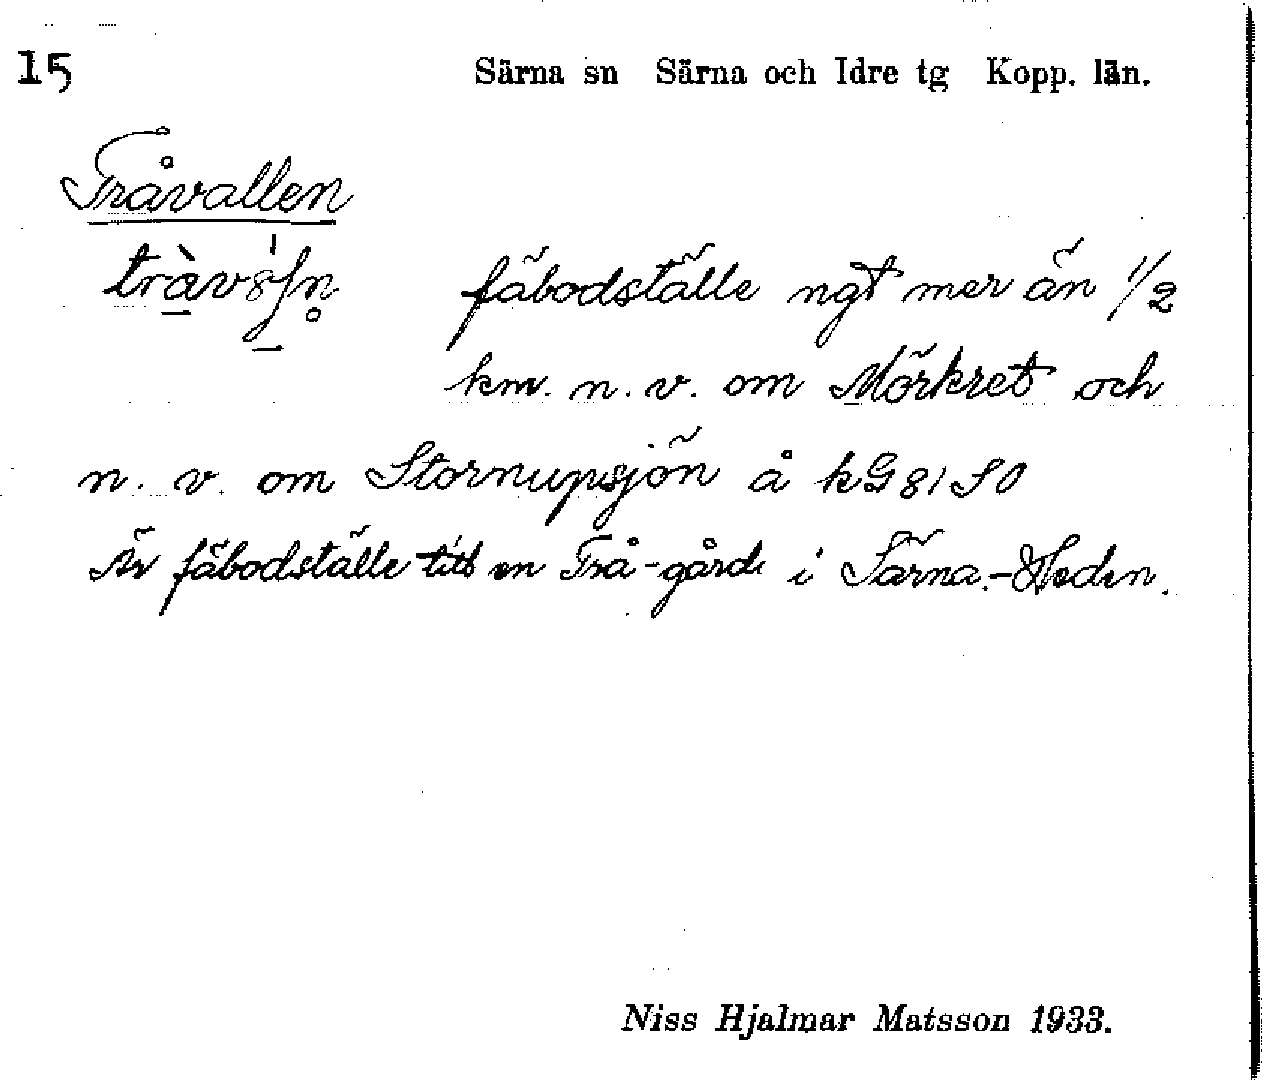 15
Särna sn Särna och Idre tg Kopp. län.
Tråvallen
fäbodställe ngt mer än 1/2
km. n. v. om Mörkret och
n. v. om Stornupsjön å kG 81 SO
Är fäbodställe till en Trå-gårde i Särna.-Heden.
Niss Hjalmar Matsson 1933.